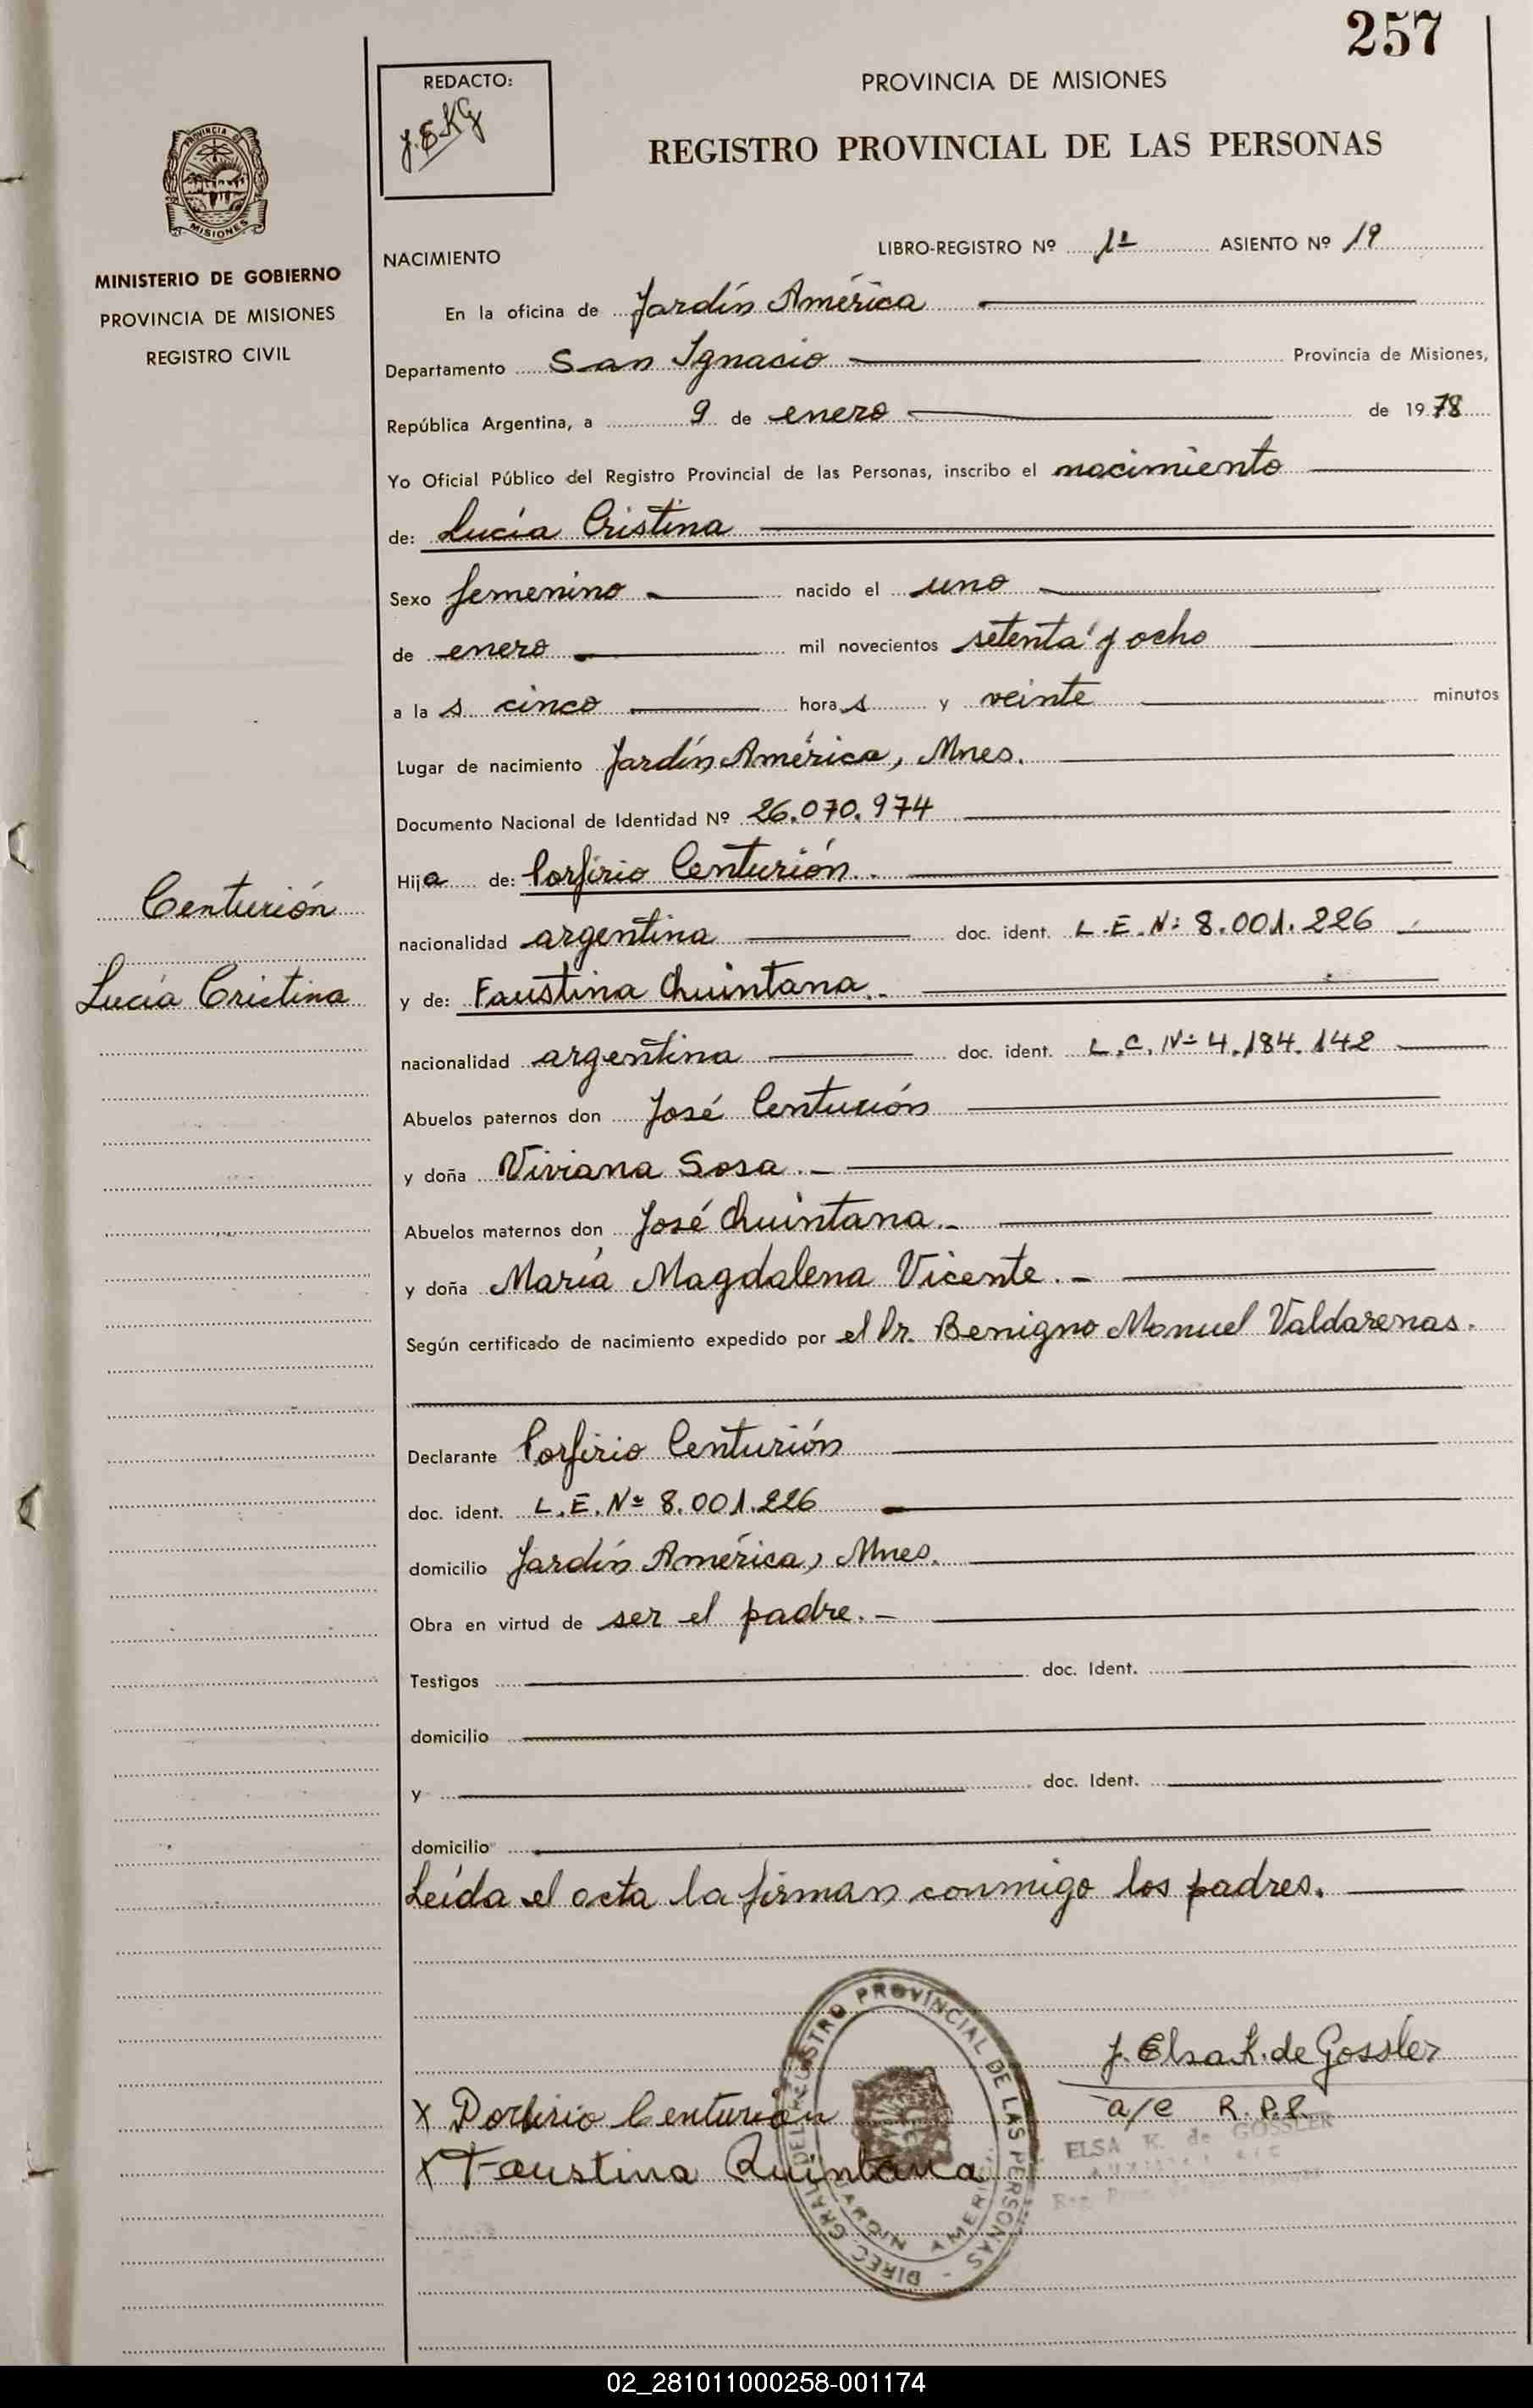 257
REDACTO:
J.E.KG
PROVINCIA DE MISIONES
REGISTRO PROVINCIAL DE LAS PERSONAS
PROVINCIA DE
MISIONES
MINISTERIO DE GOBIERNO
PROVINCIA DE MISIONES
REGISTRO CIVIL
NACIMIENTO
LIBRO-REGISTRO Nº 1º ASIENTO Nº 19
En la oficina de Jardín América
Departamento San Ignacio Provincia de Misiones,
República Argentina, a 9 de enero de 1978
Yo Oficial Público del Registro Provincial de las Personas, inscribo el nacimiento
de: Lucía Cristina
Sexo femenino nacido el uno
de enero mil novecientos setenta y ocho
a la s cinco hora s y veinte minutos
Lugar de nacimiento Jardín América, Mnes.
Documento Nacional de Identidad Nº 26.070.974
Hija de: Porfirio Centurión.
Centurión
nacionalidad argentina doc. ident. L.E.Nº 8.001.226
Lucía Cristina
y de: Faustina Quintana.-
nacionalidad argentina doc. ident. L.C. Nº 4.184.142
Abuelos paternos don José Centurión
y doña Viviana Sosa.-
Abuelos maternos don José Quintana.-
y doña María Magdalena Vicente.-
Según certificado de nacimiento expedido por el Dr. Benigno Manuel Valdarenas.
Declarante Porfirio Centurión
doc. ident. L.E.Nº 8.001.226
domicilio Jardín América, Mnes.
Obra en virtud de ser el padre.-
Testigos doc. Ident.
domicilio
y doc. Ident.
domicilio
Leída el acta la firman conmigo los padres.
J. Elsa K. de Gossler
a/c R.P.P.
ELSA K. de GOSSLER
X Porfirio Centurión
X Faustina Quintana
DIREC. GRAL. DEL REGISTRO PROVINCIAL DE LAS PERSONAS -
JARDIN AMERICA
02_281011000258-001174